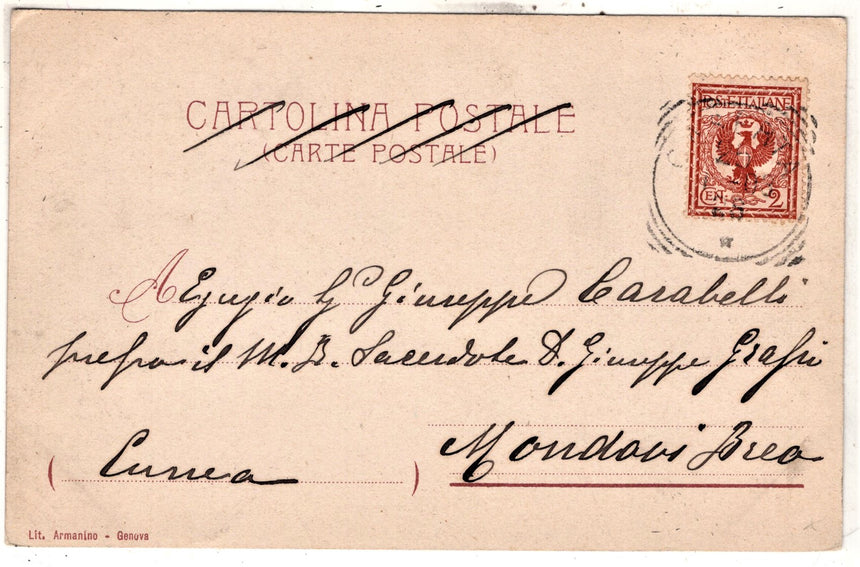 CARTOLINA POSTALE
(CARTE POSTALE)
POSTE ITALIANE
CEN. 2
A Egregio Sig.r Giuseppe Carabelli
presso il M. R. Sacerdote D. Giuseppe Grassi
Mondovi Breo
(Cuneo)
Lit. Armanino - Genova